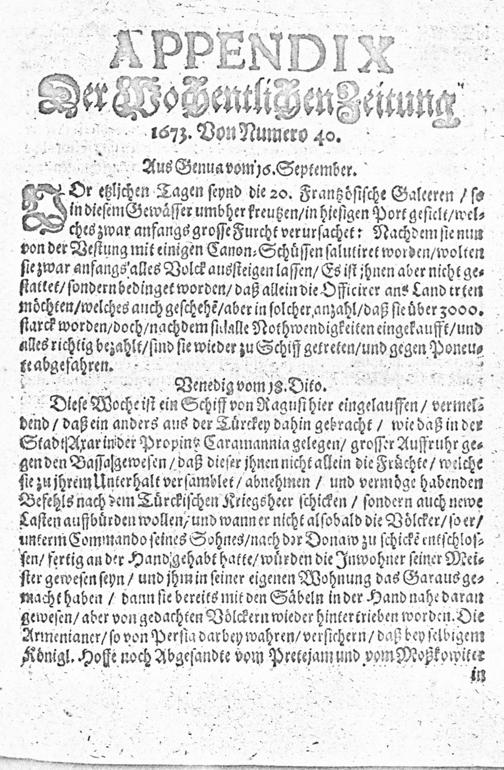 APPENDIX
Der Wochentlichen Zeitung
1673. Von Numero 40.
Aus Genua vom 16. September.
VOr etlichen Tagen seynd die 20. Frantzösische Galeeren / so
in diesem Gewässer umbher kreutzen / in hiesigen Port gesielt / wel-
ches zwar anfangs grosse Furcht verursachet: Nachdem sie nun
von der Vestung mit einigen Canon-Schüssen salutiret worden / wolten
sie zwar anfangs alles Volck aussteigen lassen / Es ist jhnen aber nicht ge-
stattet / sondern bedinget worden / daß allein die Officirer ans Land tretten
möchten / welches auch geschehē / aber in solcher anzahl / daß sie über 3000.
starck worden / doch / nachdem sie alle Nothwendigkeiten eingekaufft / und
alles richtig bezahlt / sind sie wieder zu Schiff getreten / und gegen Poneu-
te abgefahren.
Venedig vom 18. Dito.
Diese Woche ist ein Schiff von Ragusi hier eingelauffen / vermel-
dend / daß ein anders aus der Türckey dahin gebracht / wie daß in der
Stadt Axar in der Propintz Caramannia gelegen / grosser Auffruhr ge-
gen den Bassa gewesen / daß dieser jhnen nicht allein die Früchte / welche
sie zu jhrem Unterhalt versamblet / abnehmen / und vermöge habenden
Befehls nach dem Türckischen Kriegsheer schicken / sondern auch newe
Lasten auffbürden wollen / und wann er nicht alsobald die Völcker / so er /
unterm Commando seines Sohnes / nach der Donaw zu schickē entschlos-
sen / fertig an der Hand gehabt hatte / würden die Inwohner seiner Mei-
ster gewesen seyn / und jhm in seiner eigenen Wohnung das Garaus ge-
macht haben / dann sie bereits mit den Säbeln in der Hand nahe daran
gewesen / aber von gedachten Völckern wieder hintertrieben worden. Die
Armenianer / so von Persia darbey wahren / versichern / daß bey selbigem
Königl. Hoffe noch Abgesandte vom Pretejam und vom Moßkowiter
in